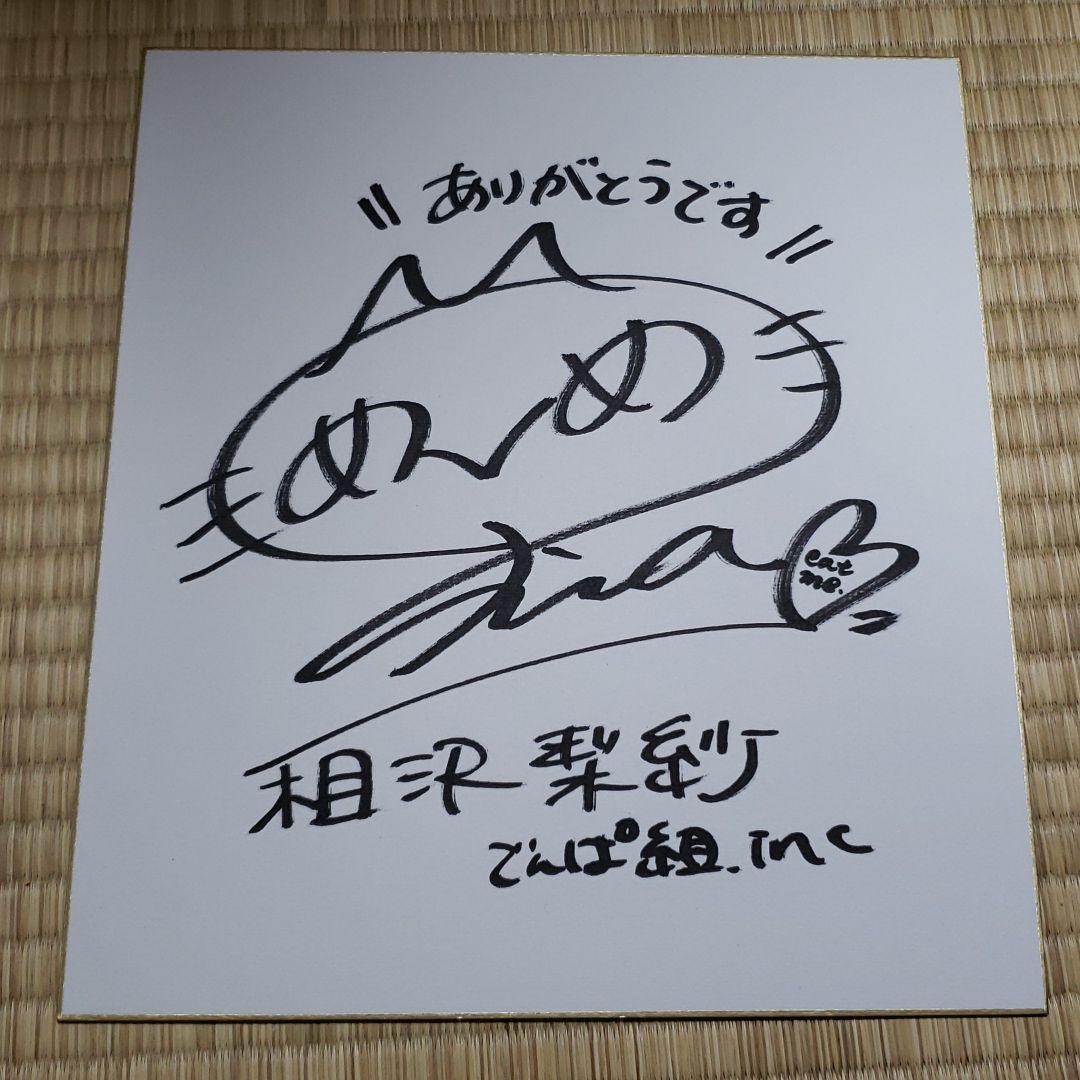 ありがとうです
めんめ
eat
me.
相沢梨紗
でんぱ組.inc